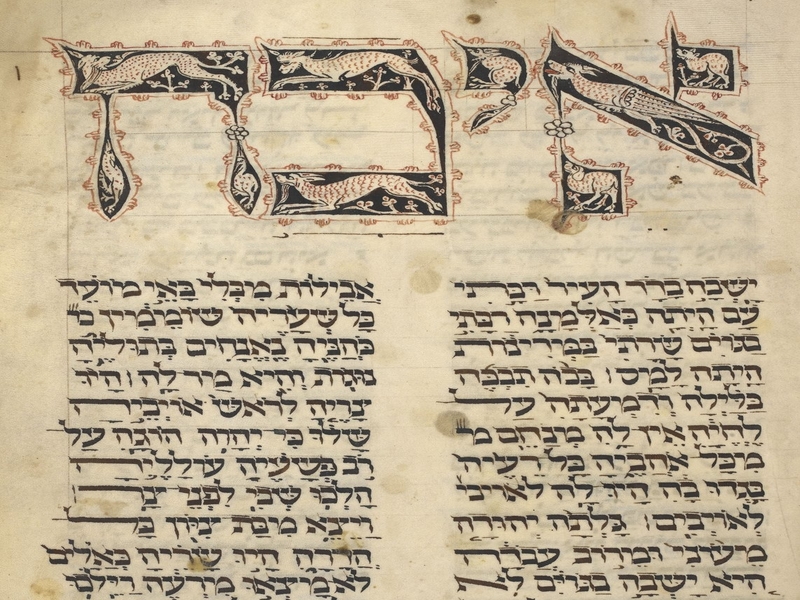 איכה
ישבה בדד העיר רבתי
עם היתה כאלמנה רבתי
בגוים שרתי במדינות
היתה למס׃ בכה תבכה
בלילה ודמעתה על
לחיה אין לה מנחם מ
מכל אהביה כל רעיה
בגדו בה היו לה לאויבי
לאויבים׃ גלתה יהודה
מעוני ומרוב עבדה
היא ישבה בגוים לא
אבילות מבלי באי מועד
כל שעריה שוממין כ
כהניה נאנחים בתוליה
נוגות והיא מר לה׃ היו
צריה לראש אויביה
שלו כי יהוה הוגה על
רב פשעיה עולליה
הלכו שבי לפני צר
ויצא מבת ציון כל
הדרה היו שריה כאלים
לא מצאו מרעה וילכו